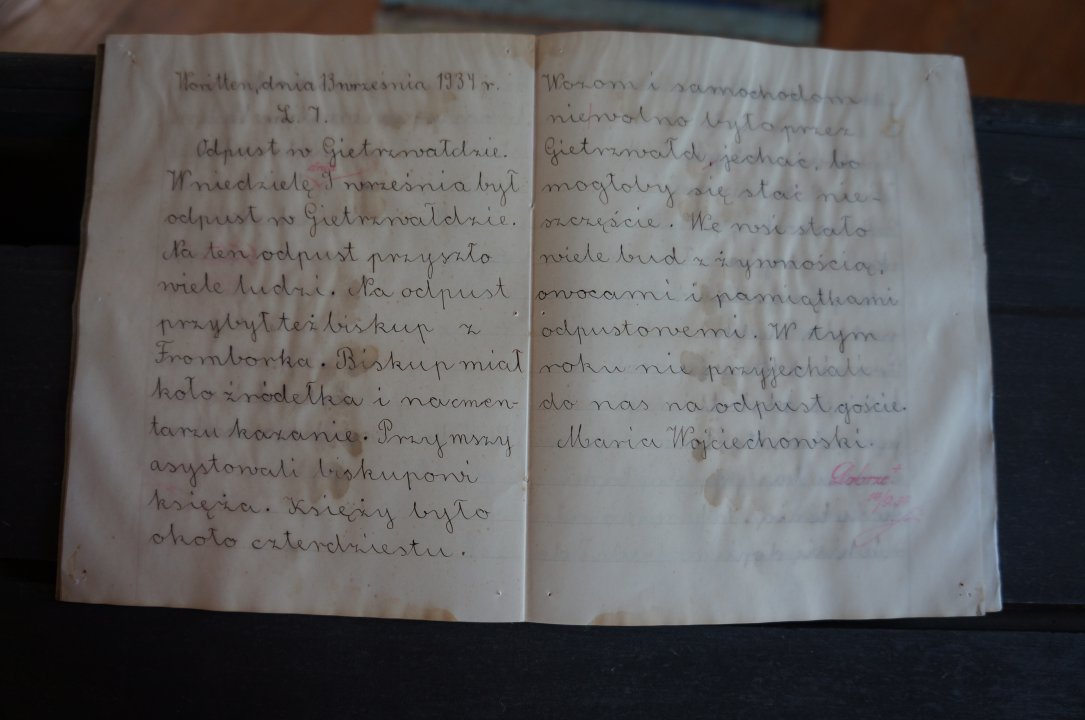 Woritten, dnia 13 września 1934 r.
L. 1.
Odpust w Gietrzwałdzie.
W niedzielę 9 września był
odpust w Gietrzwałdzie.
Na ten odpust przyszło
wiele ludzi. Na odpust
przybył też biskup z
Fromborka. Biskup miał
koło źródełka i na cmen-
tarzu kazanie. Przy mszy
asystowali biskupowi
księża. Księży było
około czterdziestu.
Wozom i samochodom
niewolno było przez
Gietrzwałd, jechać, bo
mogłoby się stać nie-
szczęście. We wsi stało
wiele bud z żywnością,
owocami i pamiątkami
odpustowemi. W tym
roku nie przyjechali
do nas na odpust goście.
Maria Wojciechowski.
Dobrze!